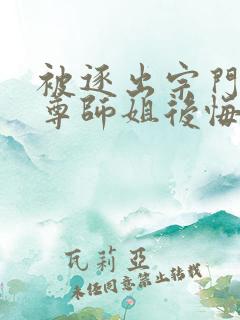 被逐出宗門
尊師姐後悔
瓦莉亞
未經同意禁止轉載